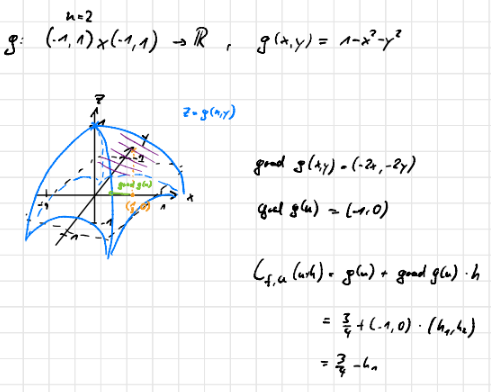 n=2
g: (-1,1)×(-1,1) → ℝ , g(x,y) = 1-x²-y²
z
1
z=g(x,y)
y
grad g(u)
x
-1
1
-1
-1
grad g(x,y) = (-2x, -2y)
grad g(u) = (-1,0)
L_{f,u}(u+h) = g(u) + grad g(u) · h
= 3/4 + (-1,0) · (h₁,h₂)
= 3/4 - h₁